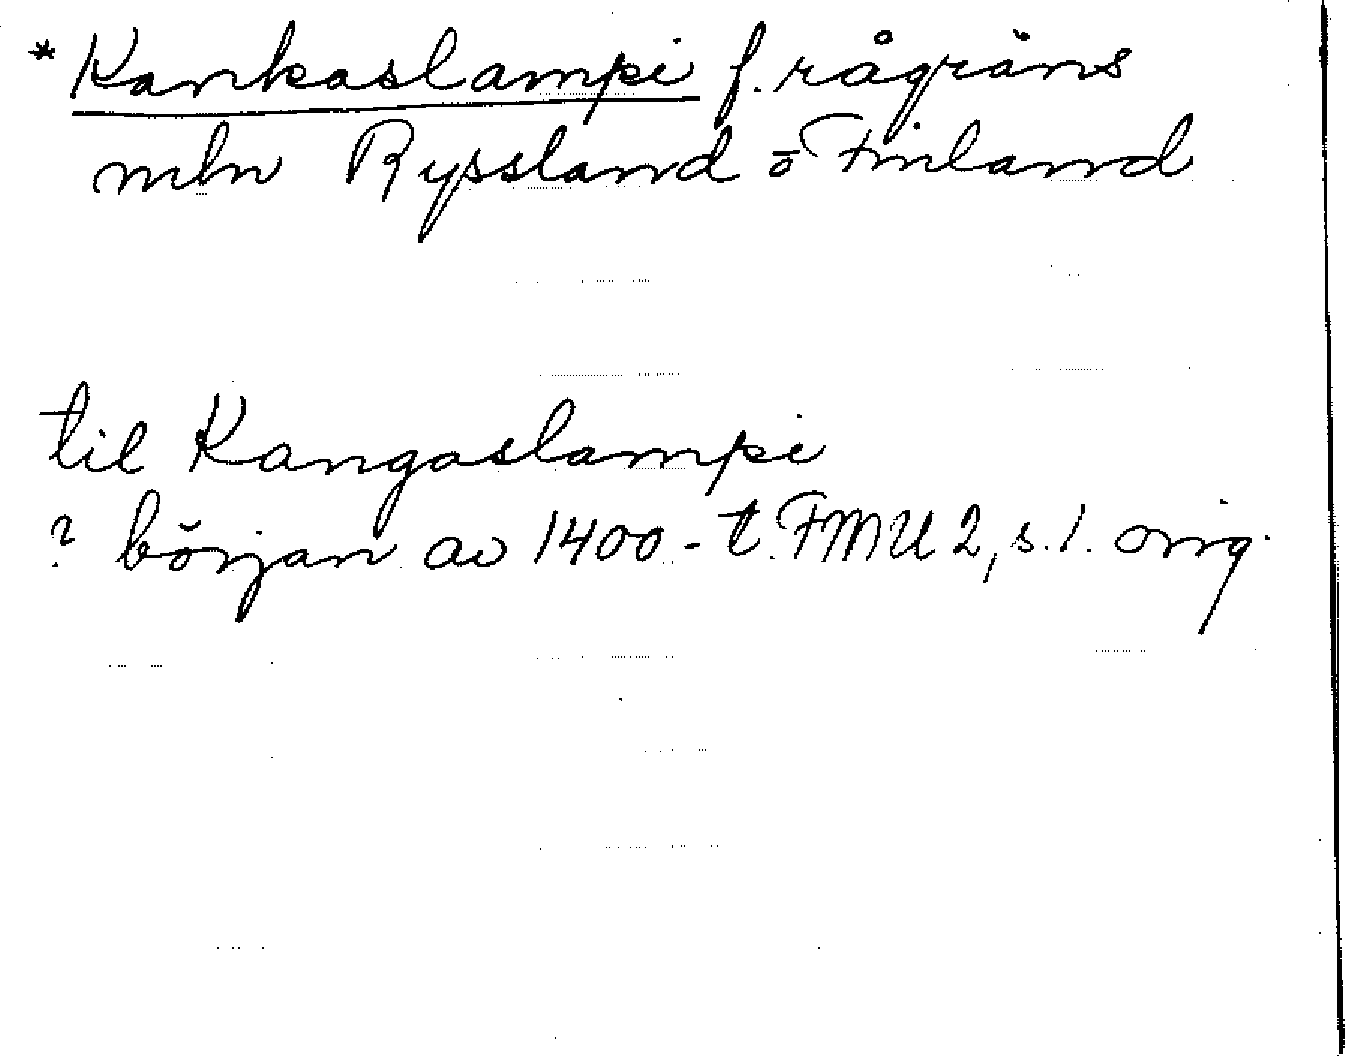 *Kankaslampi f. rågräns
mln Ryssland o Finland
til Kangaslampi
? början av 1400-t. FMU 2, s. 1. orig.